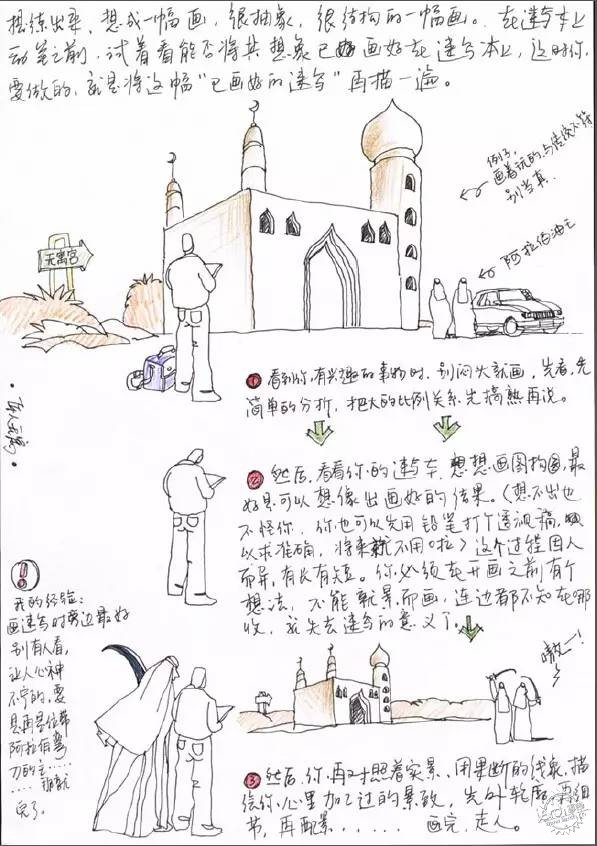 想练出来、想成一幅画，很抽象，很结构的一幅画。在速写本上
动笔之前，试着看能否将其想象已画好在速写本上，这时你
要做的，就是将这幅“已画好的速写”再描一遍。
例子，
画着玩的，与传统不符
别当真
阿拉伯油王
无离宫
①看到你有兴趣的事物时，别闷头就画，先看，先
简单的分析，把大的比例关系先搞熟再说。
②然后，看看你的速写本，想想画图构图，最
好是可以想像出画好的结果。（想不出也
不怪你，你也可以先用铅笔打个透视稿，
以求准确，将来就不用啦）这个过程因人
而异，有长有短。你必须在开画之前有个
想法，不能就景而画，连边都不知在哪
收，就失去速写的意义了。
！
我的经验：
画速写时旁边最好
别有人看，
让人心神
不宁的，要
是再是位带
阿拉伯弯
刀的主……
那就
完了。
嗷一！
③然后，你再对照着实景，用果断的线条，描
绘你心里加工过的景致，先外轮廓，再细
节，再配景……画完，走人。